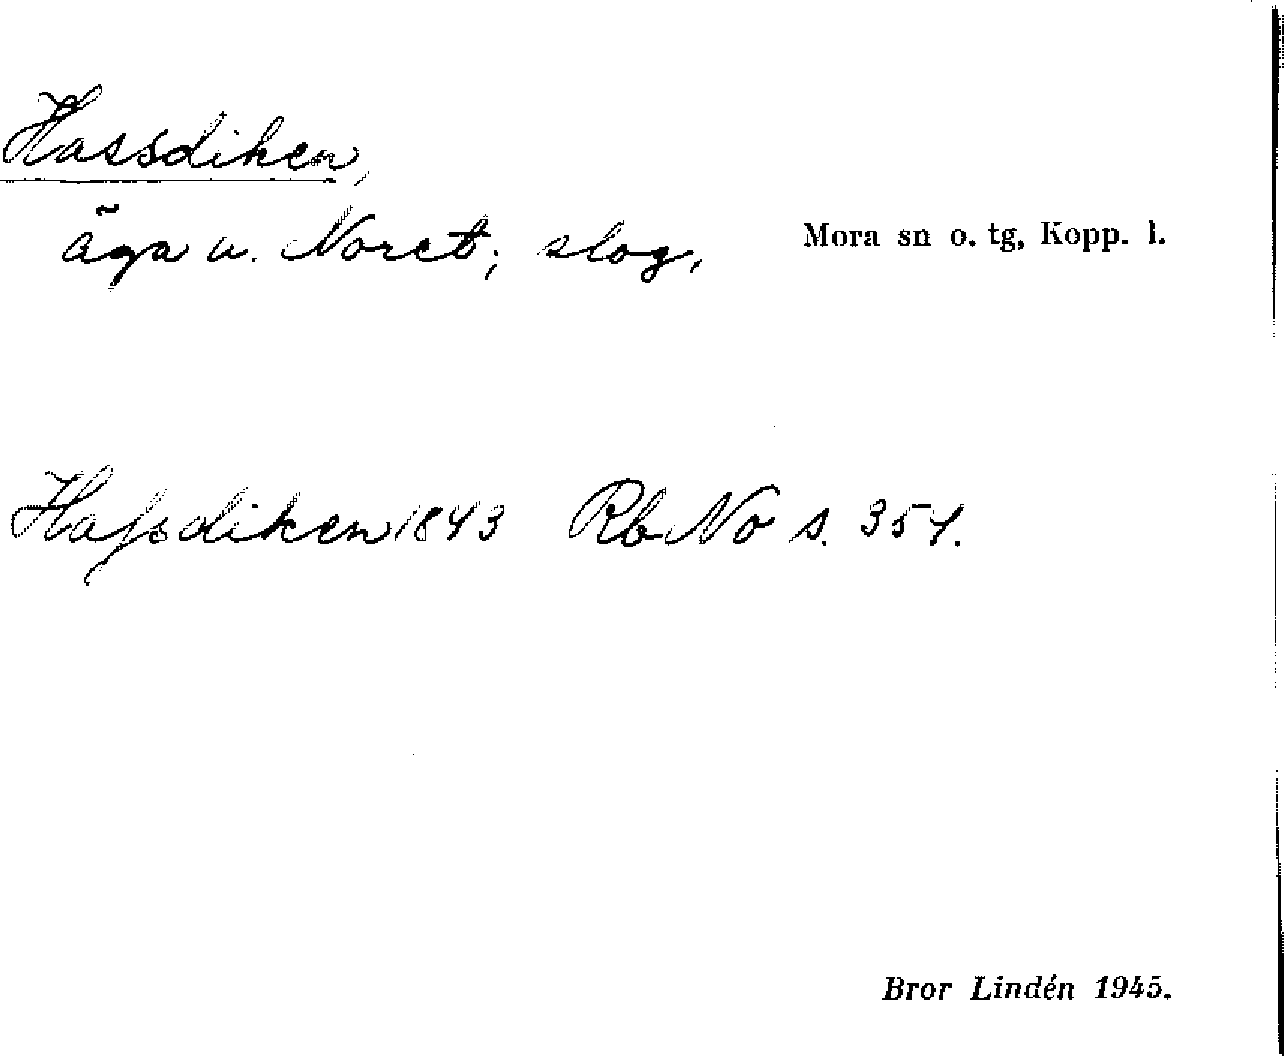 Hassdiken,
äga u. Noret; slog,
Mora sn o. tg, Kopp. l.
Hafsdiken 1843 Rb No s. 354.
Bror Lindén 1945.